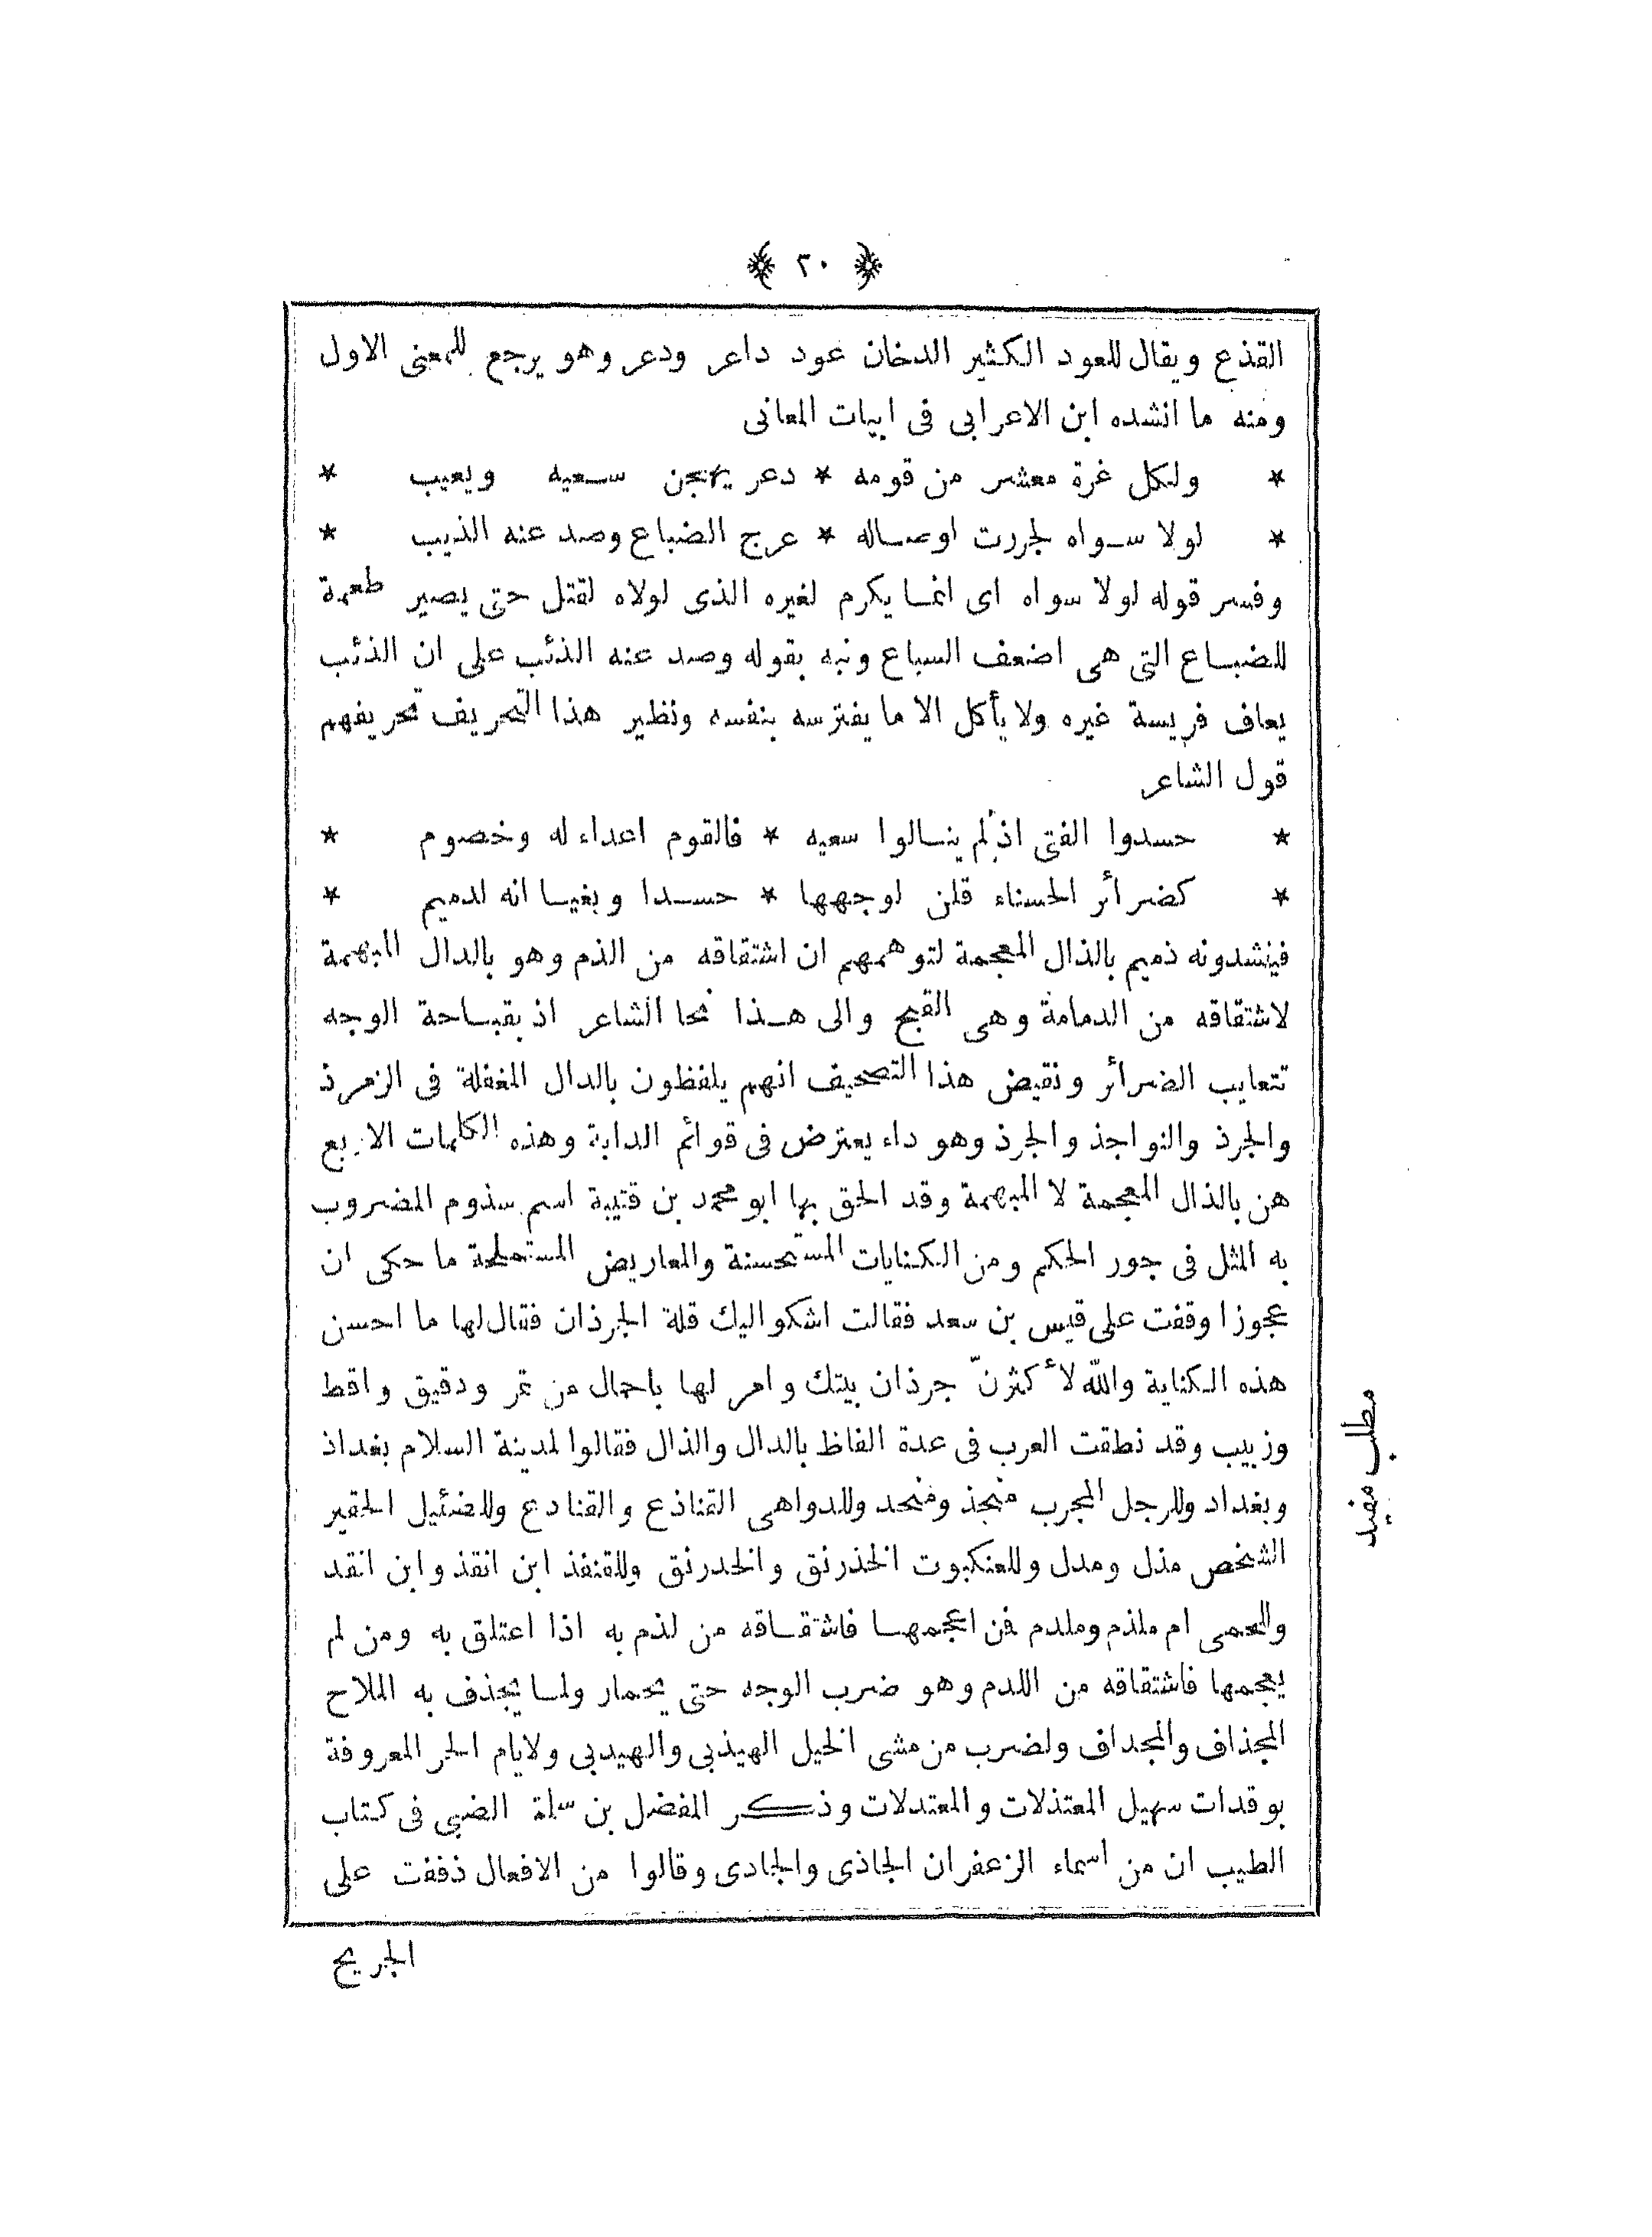 ﴿ ٣٠ ﴾
القذع ويقال للعود الكثير الدخان عود داعر ودعر وهو يرجع للمعنى الاول
ومنه ما انشده ابن الاعرابى فى ابيات المعانى
* ولكل غرة معشر من قومه * دعر يهجن سعيه ويعيب *
* لولا سواه لجررت اوصاله * عرج الضباع وصد عنه الذيب *
وفسر قوله لولا سواه اى انما يكرم لغيره الذى لولاه لقتل حتى يصير طعمة
للضباع التى هى اضعف السباع ونبه بقوله وصد عنه الذئب على ان الذئب
يعاف فريسة غيره ولا يأكل الا ما يفترسه بنفسه ونظير هذا التحريف تحريفهم
قول الشاعر
* حسدوا الفتى اذ لم ينالوا سعيه * فالقوم اعداء له وخصوم *
* كضرائر الحسناء قلن لوجهها * حسدا وبغيا انه لدميم *
فينشدونه ذميم بالذال المعجمة لتوهمهم ان اشتقاقه من الذم وهو بالدال المبهمة
لاشتقاقه من الدمامة وهى القبح والى هذا نحا الشاعر اذ بقباحة الوجه
تتعايب الضرائر ونقيض هذا التصحيف انهم يلفظون بالدال المغفلة فى الزمرذ
والجرذ والنواجذ والجرذ وهو داء يعترض فى قوائم الدابة وهذه الكلمات الاربع
هن بالذال المعجمة لا المبهمة وقد الحق بها ابو محمد بن قتيبة اسم سذوم المضروب
به المثل فى جور الحكم ومن الكنايات المستحسنة والمعاريض المستملحة ما حكى ان
عجوزا وقفت على قيس بن سعد فقالت اشكو اليك قلة الجرذان فقال لها ما احسن
هذه الكناية والله لأكثرنّ جرذان بيتك وامر لها باحمال من تمر ودقيق واقط
وزبيب وقد نطقت العرب فى عدة الفاظ بالدال والذال فقالوا لمدينة السلام بغداذ
وبغداد وللرجل المجرب منجذ ومنجد وللدواهى القناذع والقنادع وللضئيل الحقير
الشخص مذل ومدل وللعنكبوت الخذرنق والخدرنق وللقنفذ ابن انقذ وابن انقد
والحمى ام ملذم وملدم فمن اعجمها فاشتقاقه من لذم به اذا اعتلق به ومن لم
يعجمها فاشتقاقه من اللدم وهو ضرب الوجه حتى يحمار ولما يجذف به الملاح
المجذاف والمجداف ولضرب من مشى الخيل الهيذبى والهيدبى ولايام الحر المعروفة
بوقدات سهيل المعتذلات والمعتدلات وذكر المفضل بن سلمة الضبى فى كتاب
الطيب ان من اسماء الزعفران الجاذى والجادى وقالوا من الافعال ذففت على
الجريح
مطلب مفيد